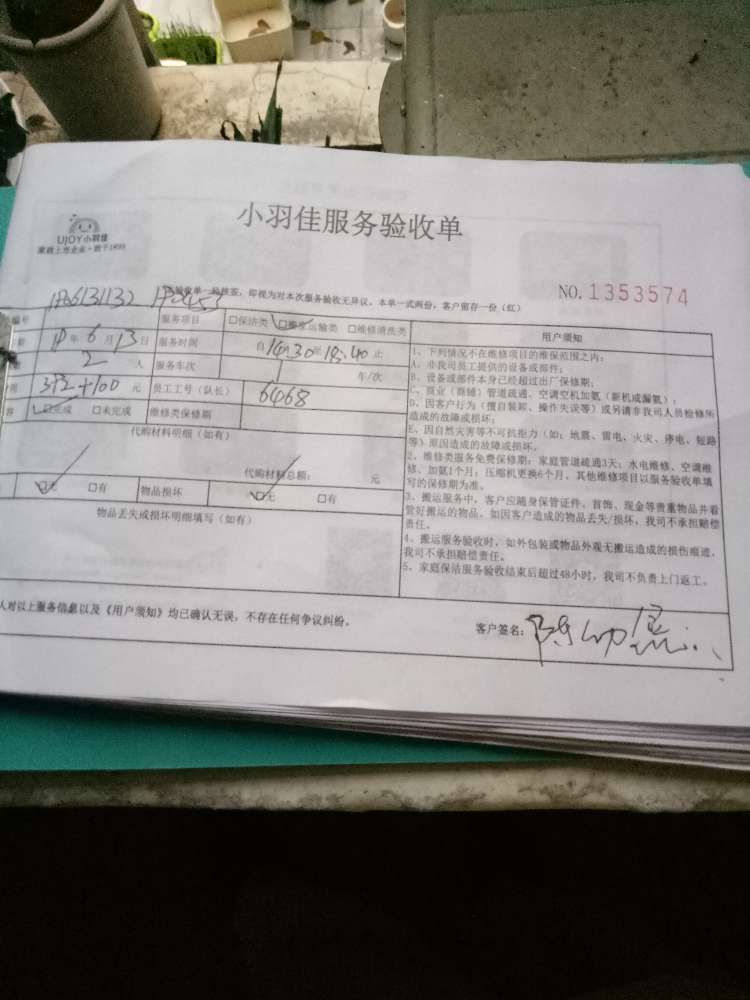 小羽佳服务验收单
UJOY小羽佳
家政上市企业·始于1999
验收单一经签签，即视为对本次服务验收无异议。本单一式两份，客户留存一份（红）
NO.1353574
编号
服务项目 □保洁类 □搬家运输类 □维修清洗类
用户须知
18年6月13日 服务时间 自14:30至18:40止
2人 服务车次 1 车/次
372+100元 员工工号（队长） 6468
☑完成 □未完成 维修类保修期
代购材料明细（如有）
代购材料总额： 元
☑无 □有 物品损坏 ☑无 □有
物品丢失或损坏明细填写（如有）
1、下列情况不在维修项目的维保范围之内：
A、非我司员工提供的设备或部件；
B、设备或部件本身已经超过出厂保修期；
C、商业（商铺）管道疏通、空调空机加氨（新机或漏氨）；
D、因客户行为（擅自装卸、操作失误等）或另请非我司人员检修所
造成的故障或损坏；
E、因自然灾害等不可抗拒力（如：地震、雷电、火灾、停电、短路
等）原因造成的故障或损坏。
2、维修类服务免费保修期：家庭管道疏通3天；水电维修、空调维
修、加氨1个月；压缩机更换6个月。其他维修项目以服务验收单填
写的保修期为准。
3、搬运服务中，客户应随身保管证件、首饰、现金等贵重物品并看
管好搬运的物品。如因客户造成的物品丢失/损坏，我司不承担赔偿
责任。
4、搬运服务验收时，如外包装或物品外观无搬运造成的损伤痕迹，
我司不承担赔偿责任。
5、家庭保洁服务验收结束后超过48小时，我司不负责上门返工。
人对以上服务信息以及《用户须知》均已确认无误，不存在任何争议纠纷。
客户签名：